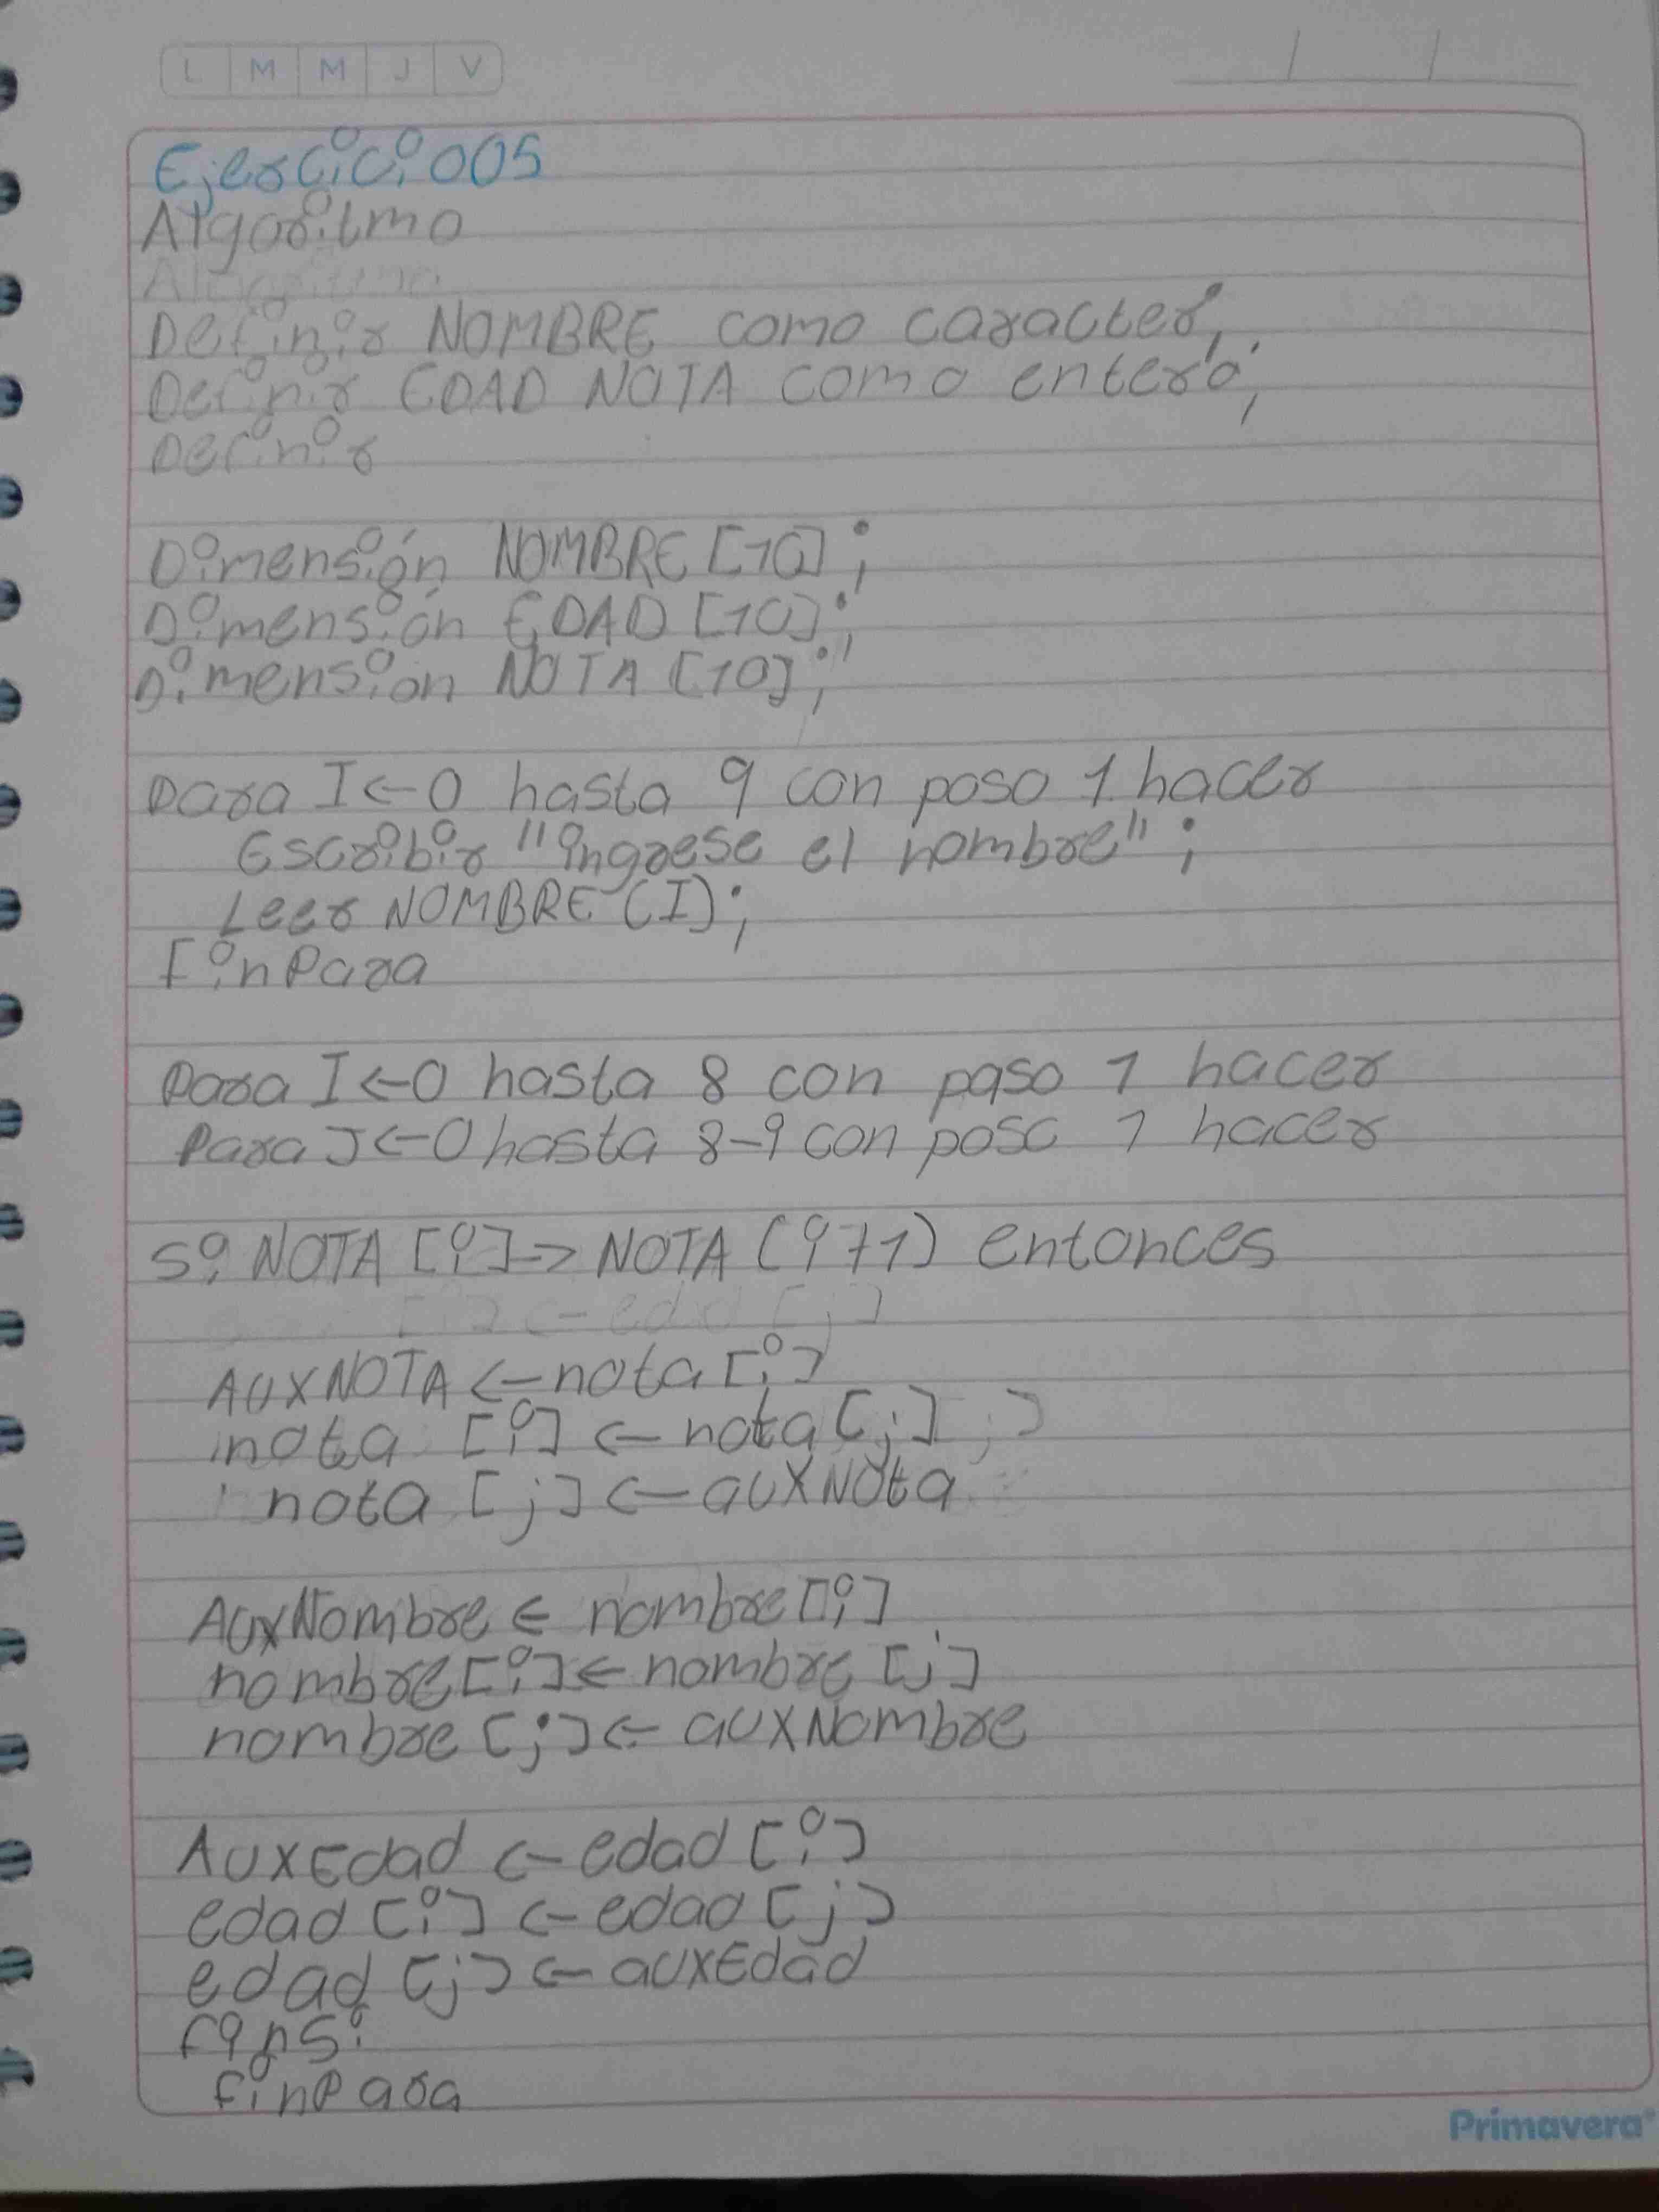 L M M J V
Ejercicio 005
Algoritmo
Algoritmo
Definir NOMBRE como caracter;
Definir EDAD NOTA como entero;
Definir
Dimensión NOMBRE [10];
Dimensión EDAD [10];
Dimension NOTA [10];
Para I<-0 hasta 9 con paso 1 hacer
Escribir "ingrese el nombre";
Leer NOMBRE (I);
FinPara
Para I<-0 hasta 8 con paso 1 hacer
Para J<-0 hasta 8-9 con paso 1 hacer
Si NOTA [i]-> NOTA (i+1) entonces
[i] <- edad [j]
AUXNOTA <- nota [i]
nota [i] <- nota [j]
nota [j] <- auxNota
AuxNombre <- nombre [i]
nombre [i] <- nombre [j]
nombre [j] <- auxNombre
AuxEdad <- edad [i]
edad [i] <- edad [j]
edad [j] <- auxEdad
finsi
finPara
Primavera